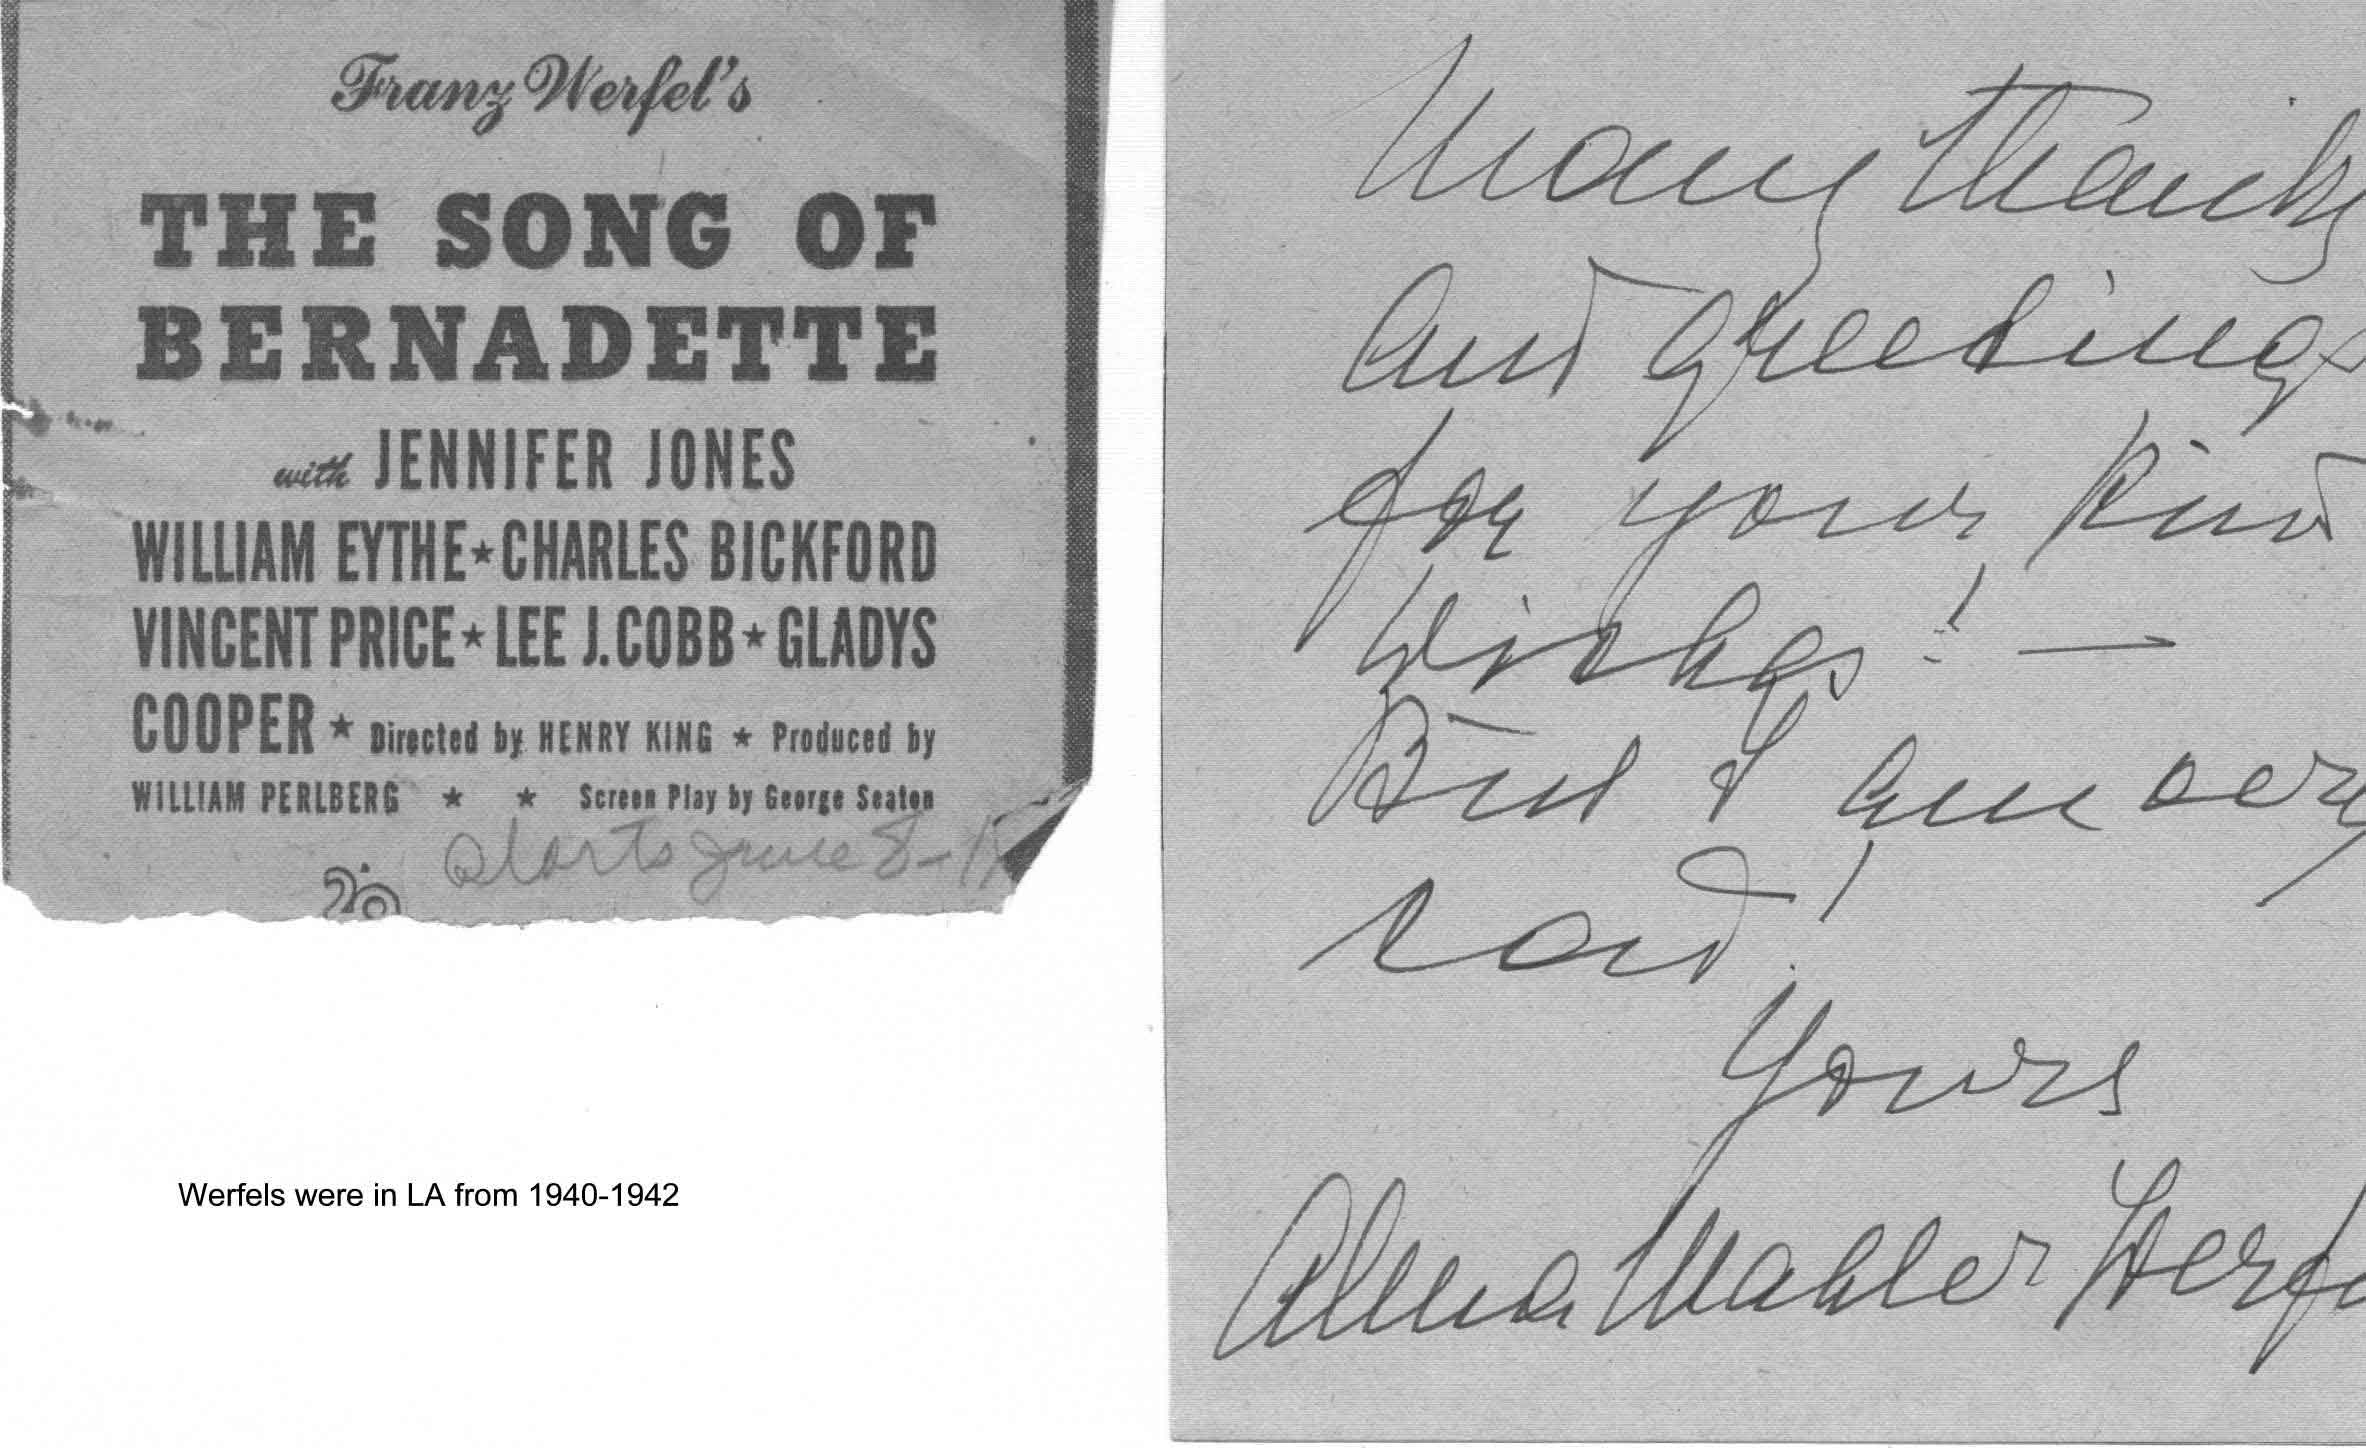 Franz Werfel's
THE SONG OF
BERNADETTE
with JENNIFER JONES
WILLIAM EYTHE★CHARLES BICKFORD
VINCENT PRICE★LEE J. COBB★GLADYS
COOPER ★ Directed by HENRY KING ★ Produced by
WILLIAM PERLBERG ★ ★ Screen Play by George Seaton
starts June 8-
20
Werfels were in LA from 1940-1942
Many thanks
and greetings
for your kind
wishes! —
But I am very
sad!
Yours
Alma Mahler Werfe